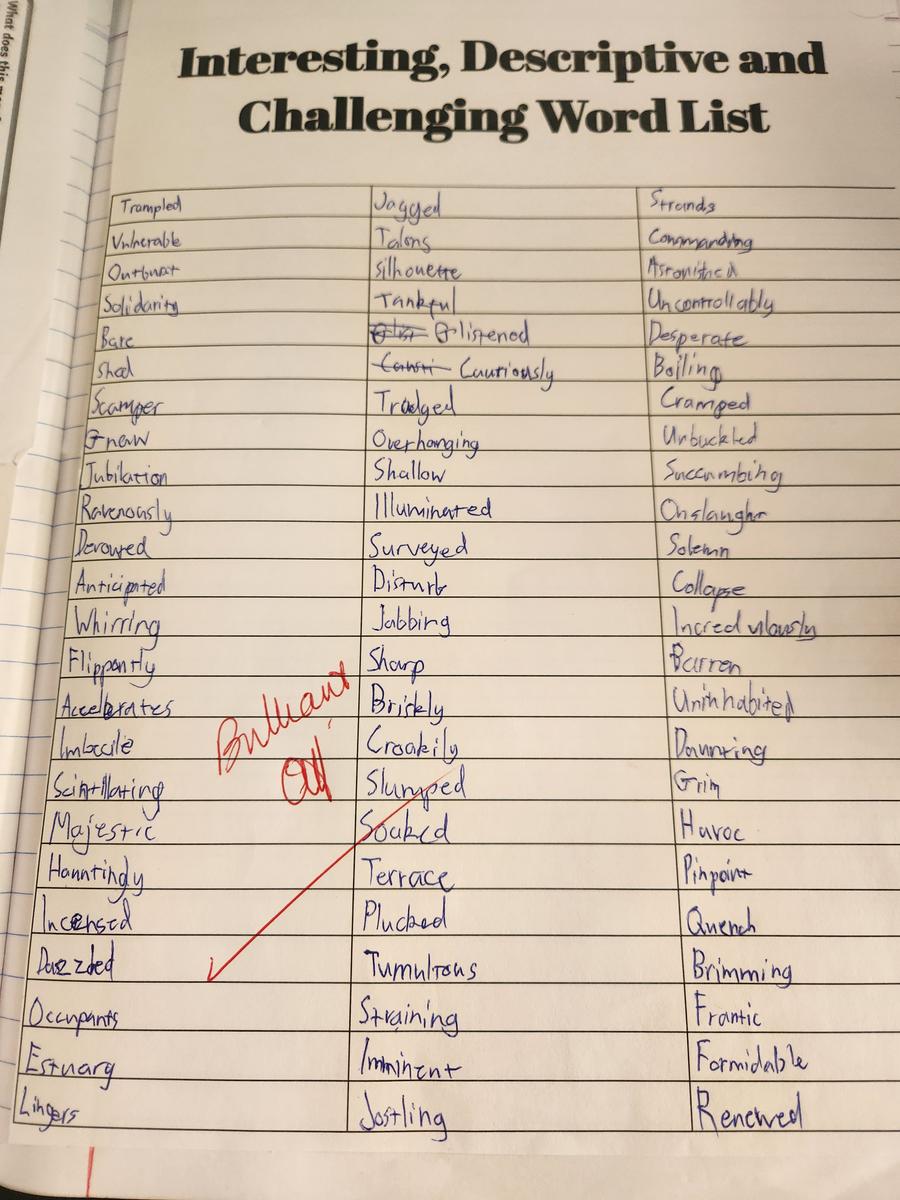 What does this
Interesting, Descriptive and
Challenging Word List
Trampled Jagged Strands
Vulnerable Talons Commanding
Outburst Silhouette Astonished
Solidarity Tankful Uncontrollably
Bare Glist Glistened Desperate
Shed Causti Cautiously Boiling
Scamper Trudged Cramped
Gnaw Overhanging Unbuckled
Jubilation Shallow Succumbing
Ravenously Illuminated Onslaught
Devoured Surveyed Solemn
Anticipated Disturb Collapse
Whirring Jabbing Incredulously
Flippantly Sharp Barren
Accelerates Briskly Uninhabited
Imbecile Croakily Daunting
Scintillating Slumped Grim
Majestic Soaked Havoc
Hauntingly Terrace Pinpoint
Incensed Plucked Quench
Dazzled Tumultous Brimming
Occupants Straining Frantic
Estuary Imminent Formidable
Lingers Jostling Renewed
Brilliant